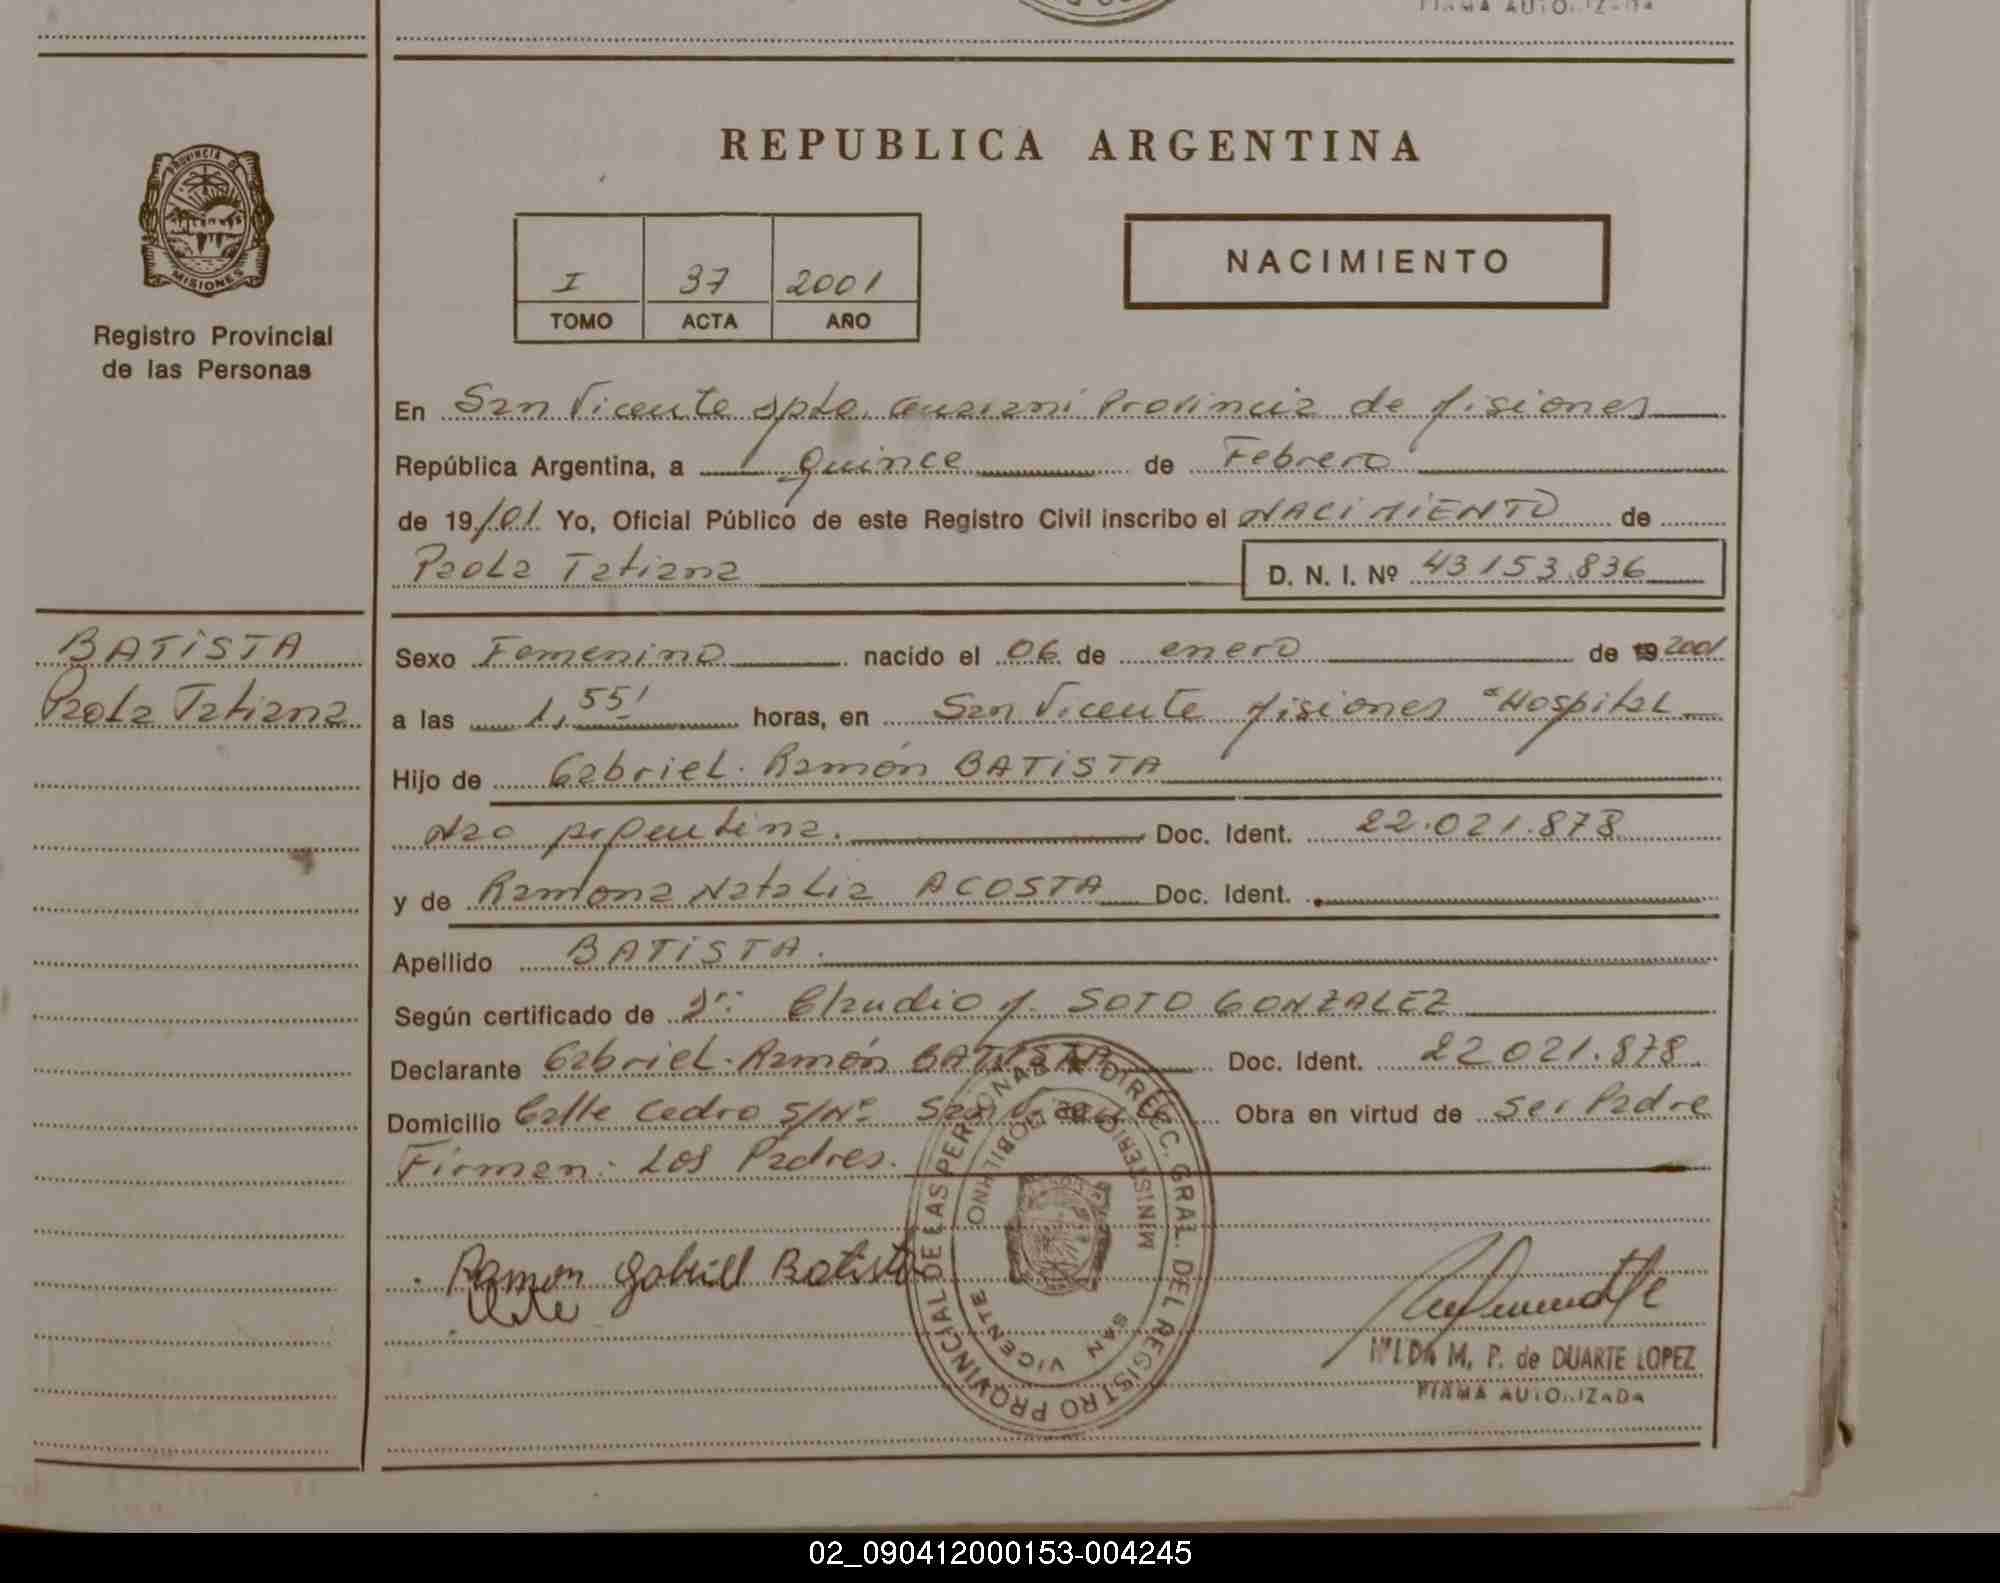 FIRMA AUTORIZADA
REPUBLICA ARGENTINA
PROVINCIA DE
MISIONES
Registro Provincial
de las Personas
I 37 2001
TOMO ACTA AÑO
NACIMIENTO
En San Vicente Dpto. Guaraní Provincia de Misiones
República Argentina, a Quince de Febrero
de 19/01 Yo, Oficial Público de este Registro Civil inscribo el NACIMIENTO de
Paola Tatiana D. N. I. Nº 43153.836
BATISTA
Paola Tatiana
Sexo Femenino nacido el 06 de enero de 19 2001
a las 1,55' horas, en San Vicente Misiones "Hospital
Hijo de Gabriel Ramón BATISTA
Nac Argentina. Doc. Ident. 22.021.878
y de Ramona Natalia ACOSTA Doc. Ident.
Apellido BATISTA.
Según certificado de Dr: Claudio M. SOTO GONZALEZ
Declarante Gabriel Ramón BATISTA Doc. Ident. 22021.878
Domicilio Calle Cedro S/Nº San Vicente Obra en virtud de Ser Padre
Firman: Los Padres.
DIREC. GRAL. DEL REGISTRO PROVINCIAL DE LAS PERSONAS
MINISTERIO DE GOBIERNO
SAN VICENTE
Ramon Gabriel Batista
HILDA M. P. de DUARTE LOPEZ
FIRMA AUTORIZADA
02_090412000153-004245